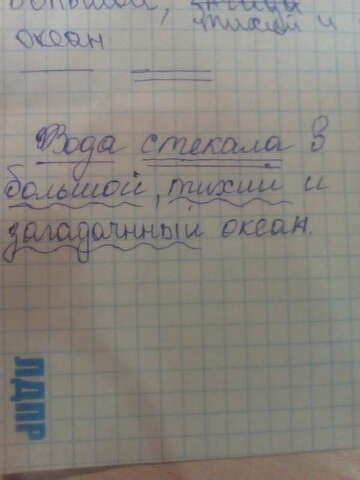 большой, тихий и
океан
Вода стекала в
большой, тихий и
загадочнный океан.
ЛДПР